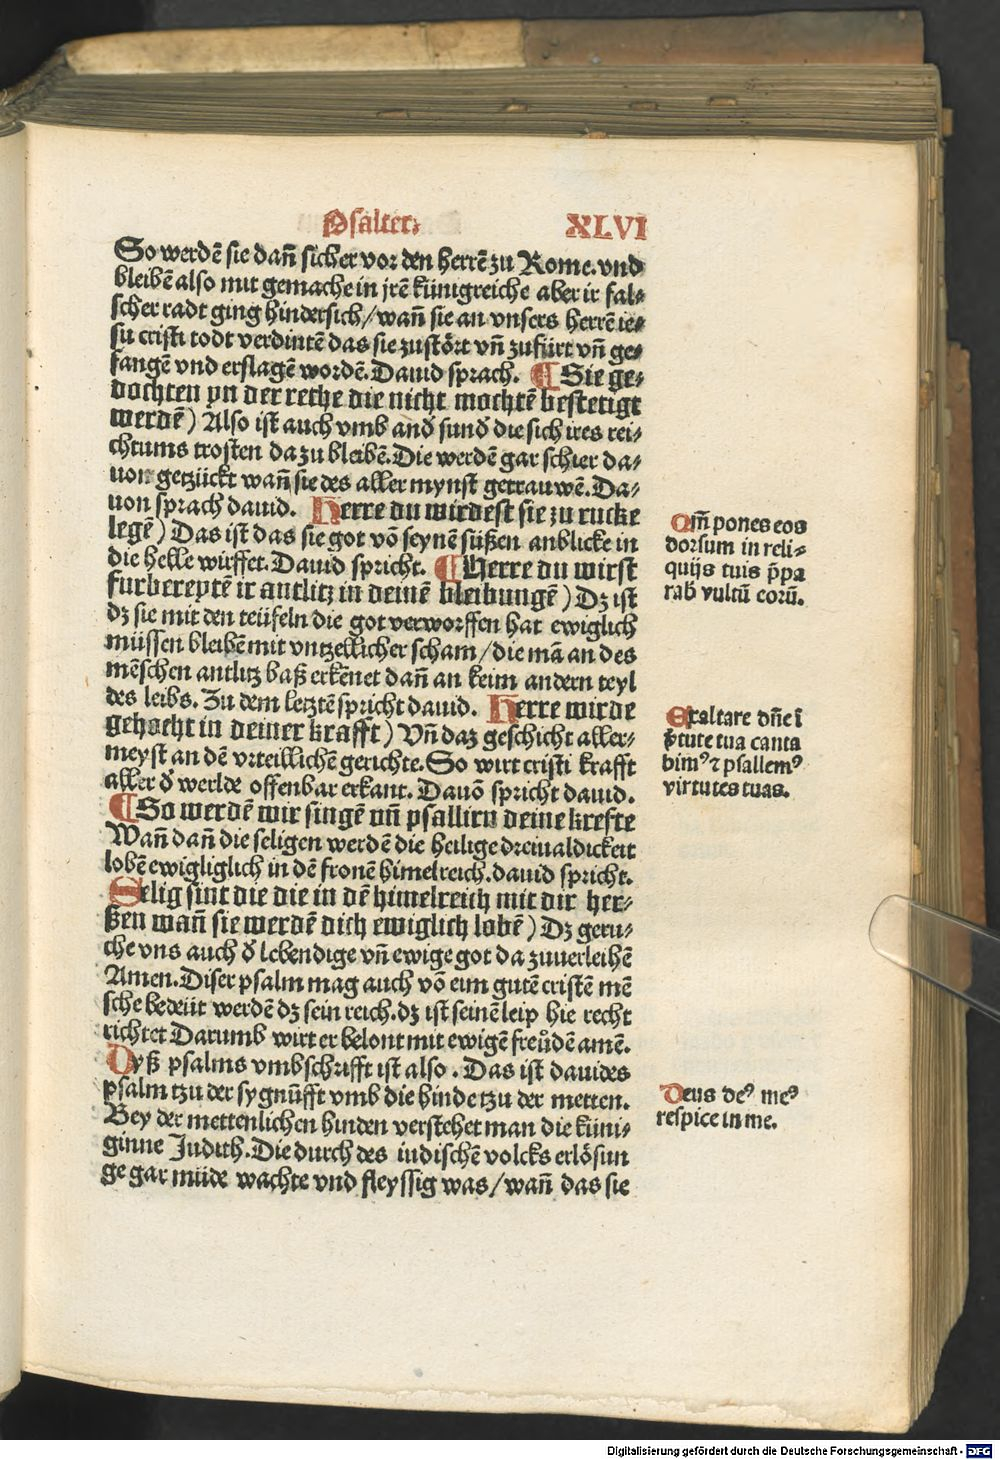 Psalter
XLVI
So werdē sie dañ sicher vor den herrē zu Rome. vnd
bleibē also mit gemache in jrē künigreiche aber ir fal⸗
scher radt ging hindersich/wañ sie an vnsers herrē ie⸗
su cristi todt verdintē das sie zustört vñ zufürt vñ ge⸗
fangē vnd erslagē wordē. Dauid sprach. ¶ Sie ge⸗
dochten yn der rethe die nicht mochtē bestetigt
werdē) Also ist auch vmb and̄ sund̄ die sich ires rei⸗
chtums trosten da zu bleibē. Die werdē gar schier da⸗
uon getzückt wañ sie des aller mynst getrauwē. Da⸗
uon sprach dauid. Herre du wirdest sie zu rucke
legē) Das ist das sie got vō seynē süßen anblicke in
die helle wirffet. Dauid spricht. ¶ Herre du wirst
furbereytē ir antlitz in deinē bleibungē) Dz ist
dz sie mit den teüfeln die got verworffen hat ewiglich
müssen bleibē mit vntzellicher scham/die mā an des
mēschen antlitz baß erkēnet dañ an keim andern teyl
des leibs. Zu dem letztē spricht dauid. Herre wirde
gehocht in deiner krafft) Vñ daz geschicht aller⸗
meyst an dē vrteillichē gerichte. So wirt cristi krafft
aller d̄ werlde offenbar erkant. Dauō spricht dauid.
¶ So werdē wir singē vñ psallirn deine krefte
Wañ dañ die seligen werdē die heilige dreiualdickeit
lobē ewigliglich in dē fronē himelreich. dauid spricht.
Selig sint die die in dē himelreich mit dir her⸗
ßen wañ sie werdē dich ewiglich lobē) Dz geru⸗
che vns auch d̄ lebendige vñ ewige got da zuuerleihē
Amen. Diser psalm mag auch vō eim gutē cristē mē
sche bedeüt werdē dz sein reich. dz ist seinē leip hie recht
richtet Darumb wirt er belont mit ewigē freůdē amē.
Dyß psalms vmbschrifft ist also. Das ist dauides
psalm tzu der sygnüfft vmb die hinde tzu der metten.
Bey der mettenlichen hinden verstehet man die küni⸗
ginne Judith. Die durch des iudischē volcks erlösun
ge gar müde wachte vnd fleyssig was/wañ das sie
Qm̄ pones eos
dorsum in reli⸗
quijs tuis p̄pa
rab vultū eorū.
Exaltare dñe ī
v̄tute tua canta
bimꝰ ⁊ psallemꝰ
virtutes tuas.
Deus deꝰ meꝰ
respice in me.
Digitalisierung gefördert durch die Deutsche Forschungsgemeinschaft - DFG